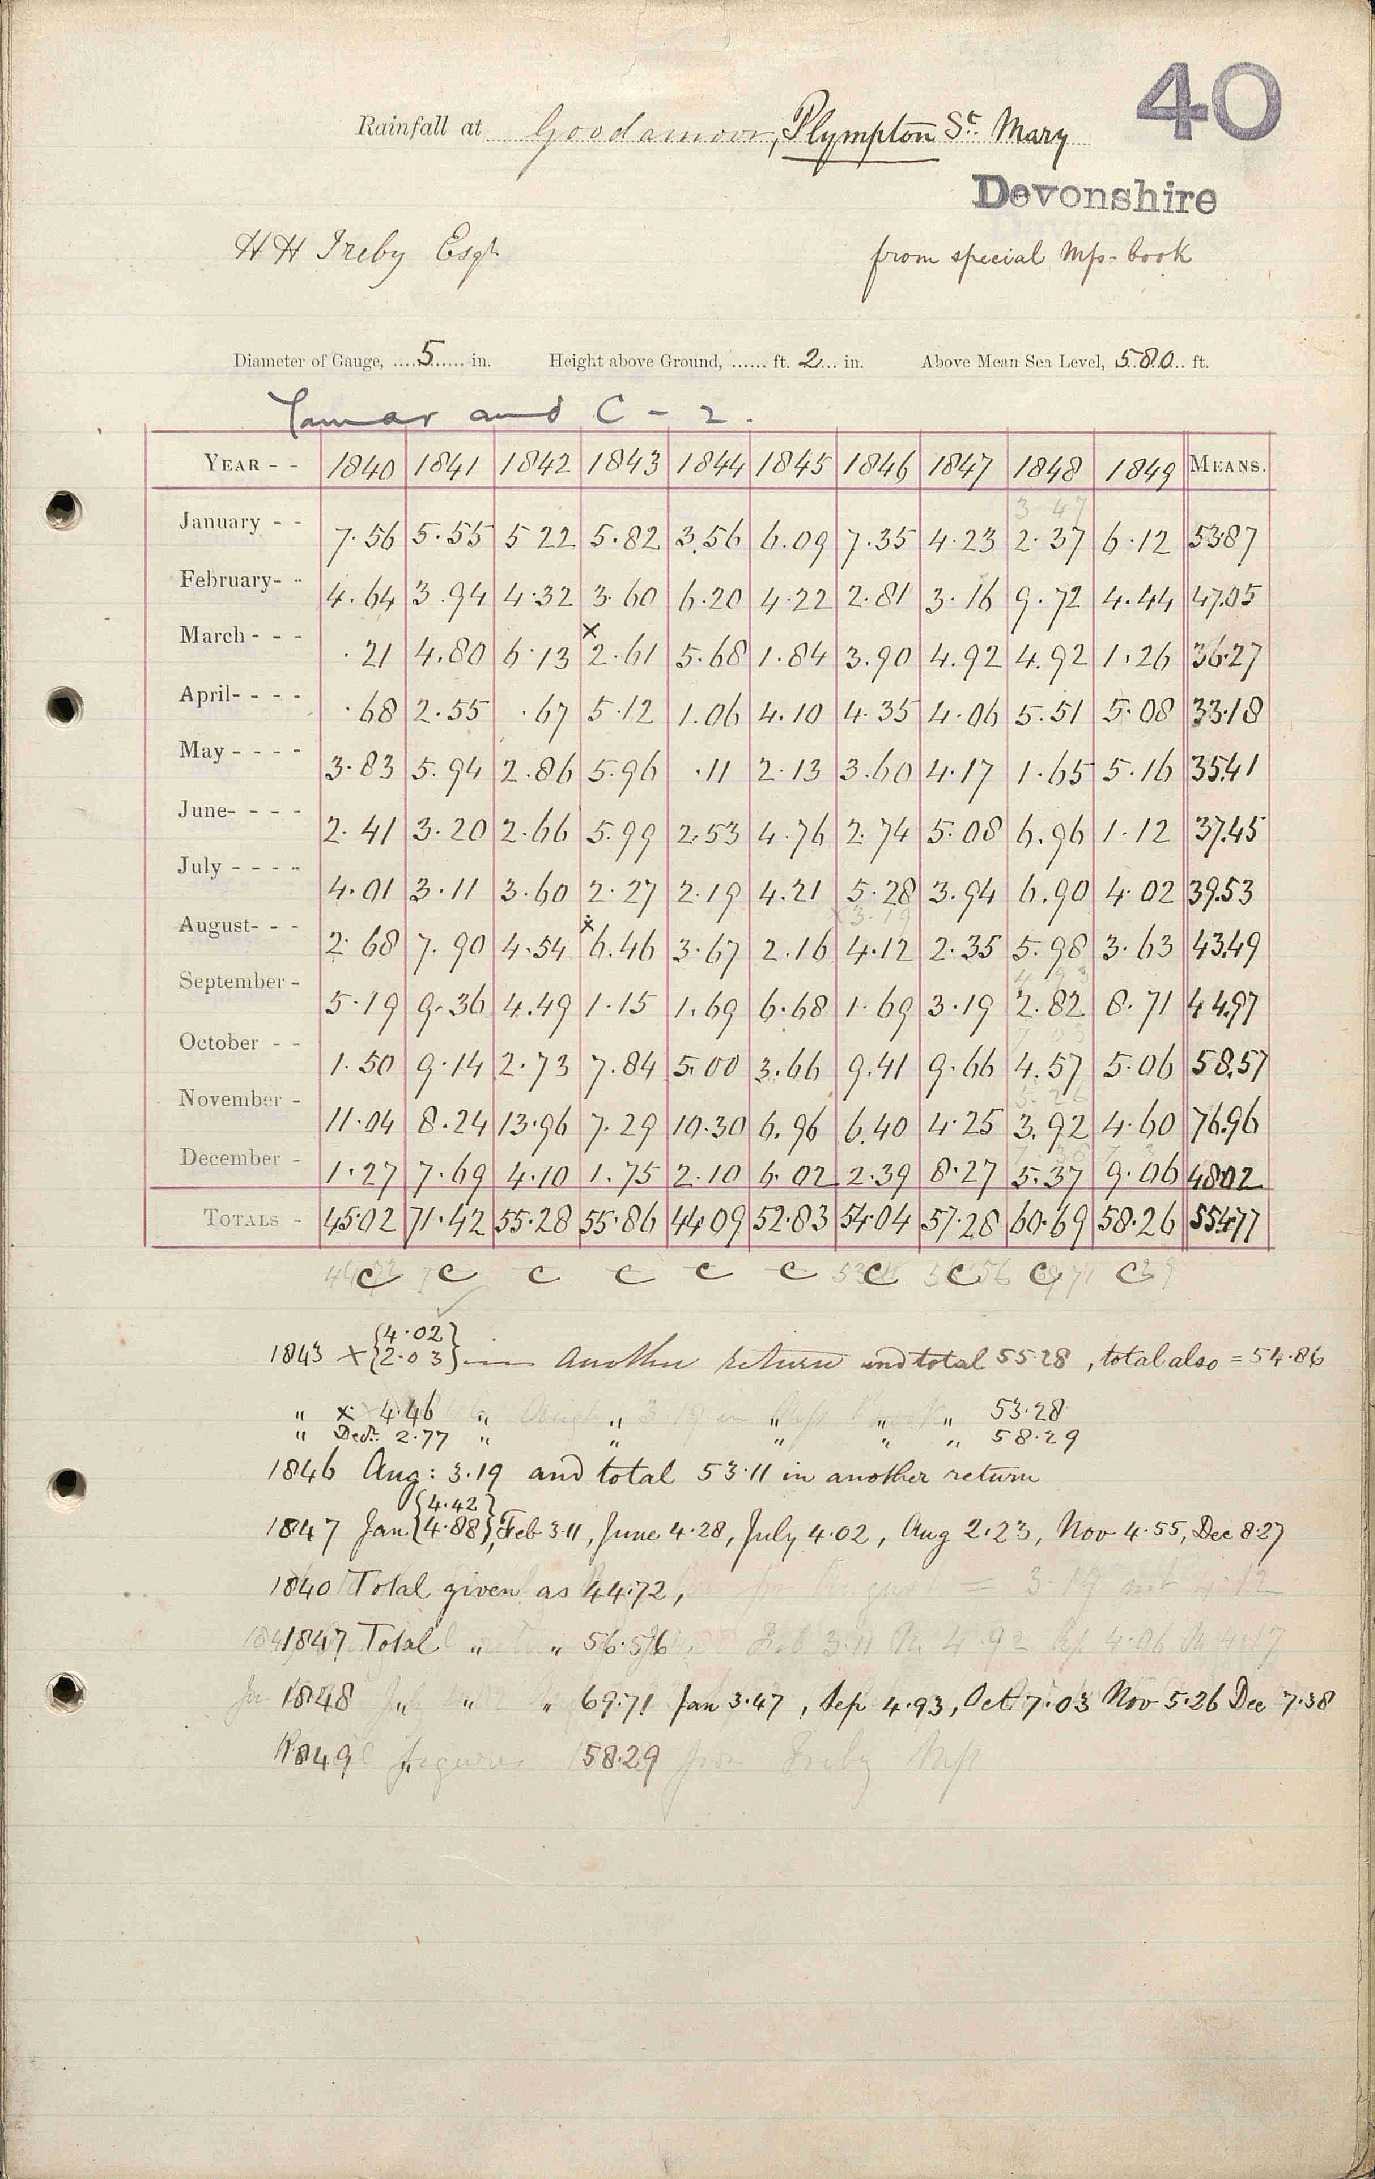 40
Rainfall at Goodamoor, Plympton St. Mary
Devonshire
H H Treby Esqr
from special Mps-book
Diameter of Gauge, 5 in. Height above Ground, ft. 2 in. Above Mean Sea Level, 580 ft.
Tamar and C - 2.
YEAR - - 1840 1841 1842 1843 1844 1845 1846 1847 1848 1849 MEANS.
3 47
January - - 7.56 5.55 5 22 5.82 3.56 6.09 7.35 4.23 2.37 6.12 53.87
February- - 4.64 3.94 4.32 3.60 6.20 4.22 2.81 3.16 9.72 4.44 47.05
March - - - .21 4.80 6.13 × 2.61 5.68 1.84 3.90 4.92 4.92 1.26 36.27
April- - - - .68 2.55 .67 5.12 1.06 4.10 4.35 4.06 5.51 5.08 33.18
May - - - - 3.83 5.94 2.86 5.96 .11 2.13 3.60 4.17 1.65 5.16 35.41
June- - - - 2.41 3.20 2.66 5.99 2.53 4.76 2.74 5.08 6.96 1.12 37.45
July - - - - 4.01 3.11 3.60 2.27 2.19 4.21 5.28 3.94 6.90 4.02 39.53
×3.19
August- - - 2.68 7.90 4.54 × 6.46 3.67 2.16 4.12 2.35 5.98 3.63 43.49
4 93
September - 5.19 9.36 4.49 1.15 1.69 6.68 1.69 3.19 2.82 8.71 44.97
7 03
October - - 1.50 9.14 2.73 7.84 5.00 3.66 9.41 9.66 4.57 5.06 58.57
5.26
November - 11.04 8.24 13.96 7.29 10.30 6.96 6.40 4.25 3.92 4.60 76.96
7 38
December - 1.27 7.69 4.10 1.75 2.10 6.02 2.39 8.27 5.37 9.06 48.02
TOTALS - 45.02 71.42 55.28 55.86 44.09 52.83 54.04 57.28 60.69 58.26 554.77
C C C C C C C C C C
1843 × {4.02 2.03} in another return and total 55.28, total also = 54.86
" × 4.46 " " " " " 53.28
" Decr. 2.77 " " " " " 58.29
1846 Aug: 3.19 and total 53.11 in another return
1847 Jan {4.42 4.88}, Feb 3.11, June 4.28, July 4.02, Aug 2.23, Nov 4.55, Dec 8.27
1840 Total given as 44.72,
1847 Total " " 56.56
1848 " " " 69.71 Jan 3.47, Sep 4.93, Oct 7.03 Nov 5.26 Dec 7.38
1849 " 58.29